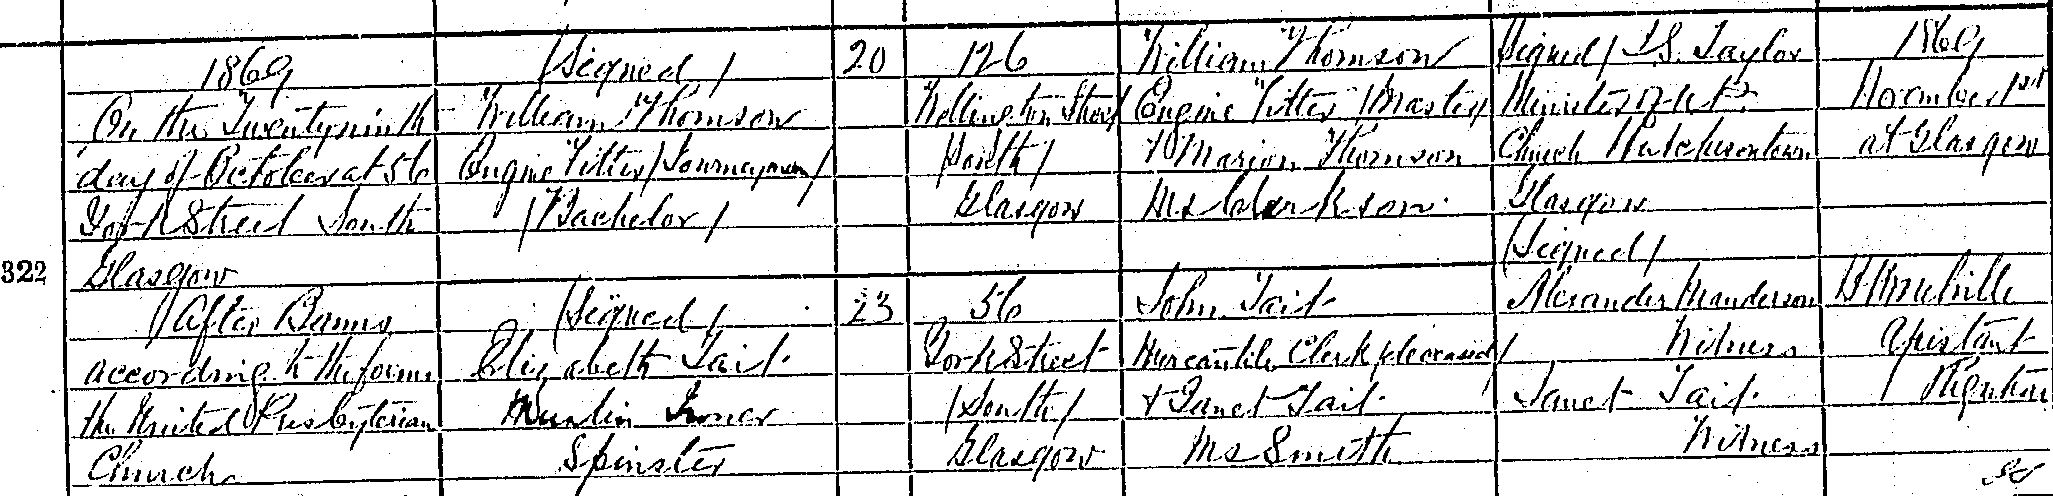 322
1869
On the Twenty ninth
day of October at 56
York Street South
Glasgow
(After Banns
according to the forms
the United Presbyterian
Church
(Signed)
William Thomson
Engine Fitter (Journeyman)
(Bachelor)
(Signed)
Elizabeth Tait
Muslin Ironer
Spinster
20
23
126
Wellington Street
(South)
Glasgow
56
York Street
(South)
Glasgow
William Thomson
Engine Fitter (Master)
& Marion Thomson
Ms Clarkson
John Tait
Mercantile Clerk (deceased)
& Janet Tait
Ms Smith
Signed) J.S. Taylor
Minister of U.P.
Church Hutchesontown
Glasgow
(Signed)
Alexander Manderson
Witness
Janet Tait
Witness
1869
November 1st
at Glasgow
Melville
Assistant
Registrar